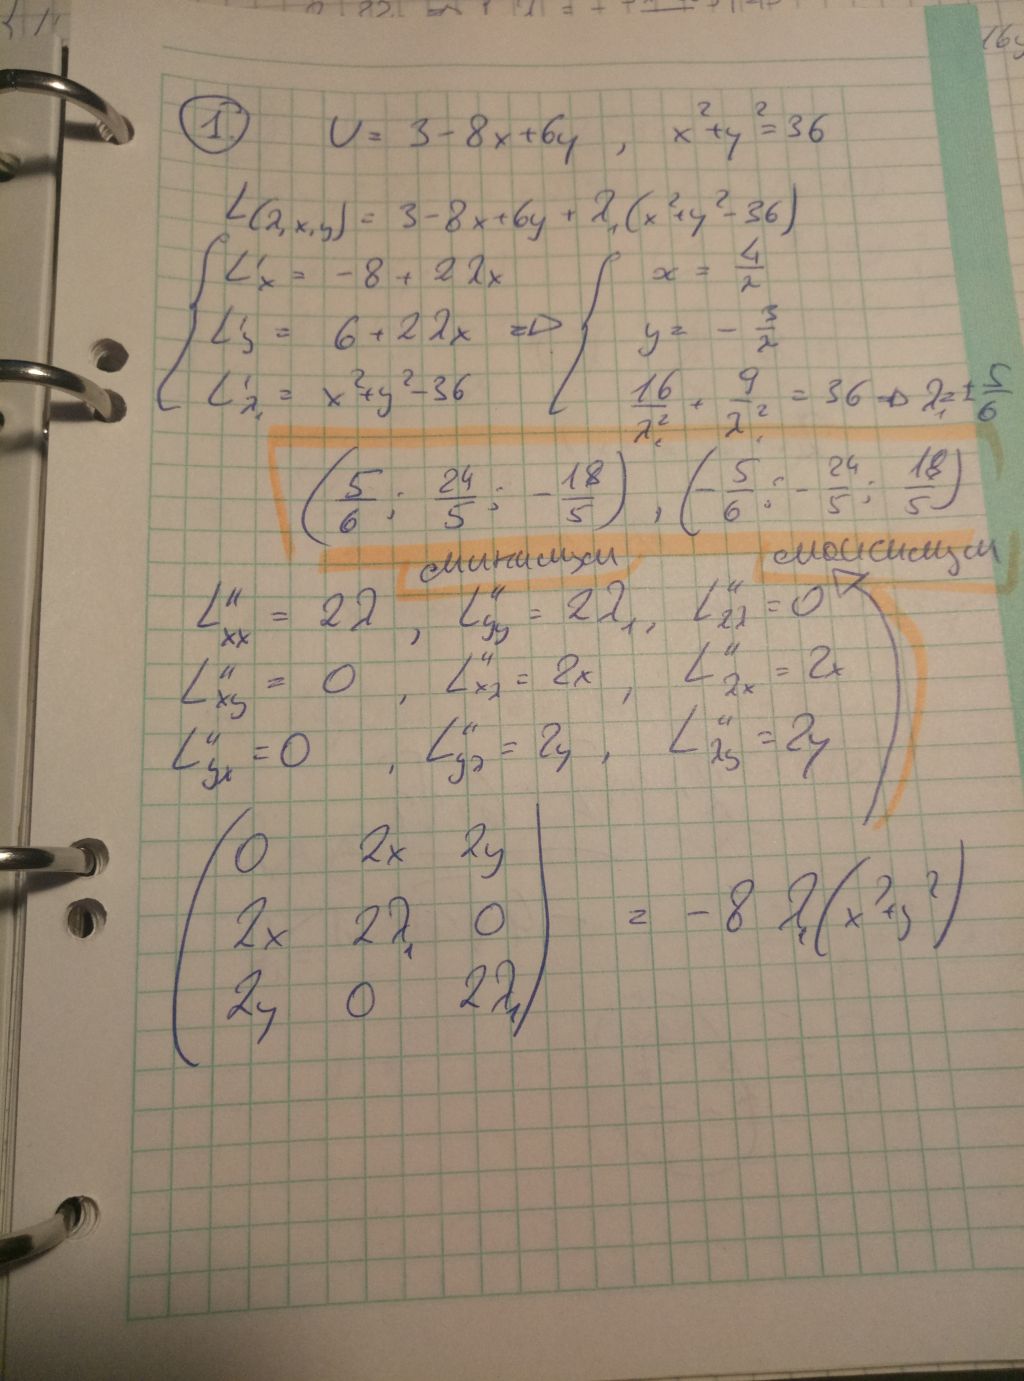 1. U = 3 - 8x + 6y , x² + y² = 36
L(λ₁x,y) = 3 - 8x + 6y + λ₁(x² + y² - 36)
L'x = -8 + 2λx x = 4/λ
L'y = 6 + 2λx => y = - 3/λ
L'λ₁ = x² + y² - 36 16/λ₁² + 9/λ₁² = 36 => λ₁ = ± 5/6
(5/6 ; 24/5 ; - 18/5) , (- 5/6 ; - 24/5 ; 18/5)
минимум максимум
L''xx = 2λ , L''yy = 2λ₁ , L''λλ = 0
L''xy = 0 , L''xλ = 2x , L''λx = 2x
L''yx = 0 , L''yλ = 2y , L''λy = 2y
0 2x 2y
2x 2λ₁ 0 = -8 λ₁(x² + y²)
2y 0 2λ₁